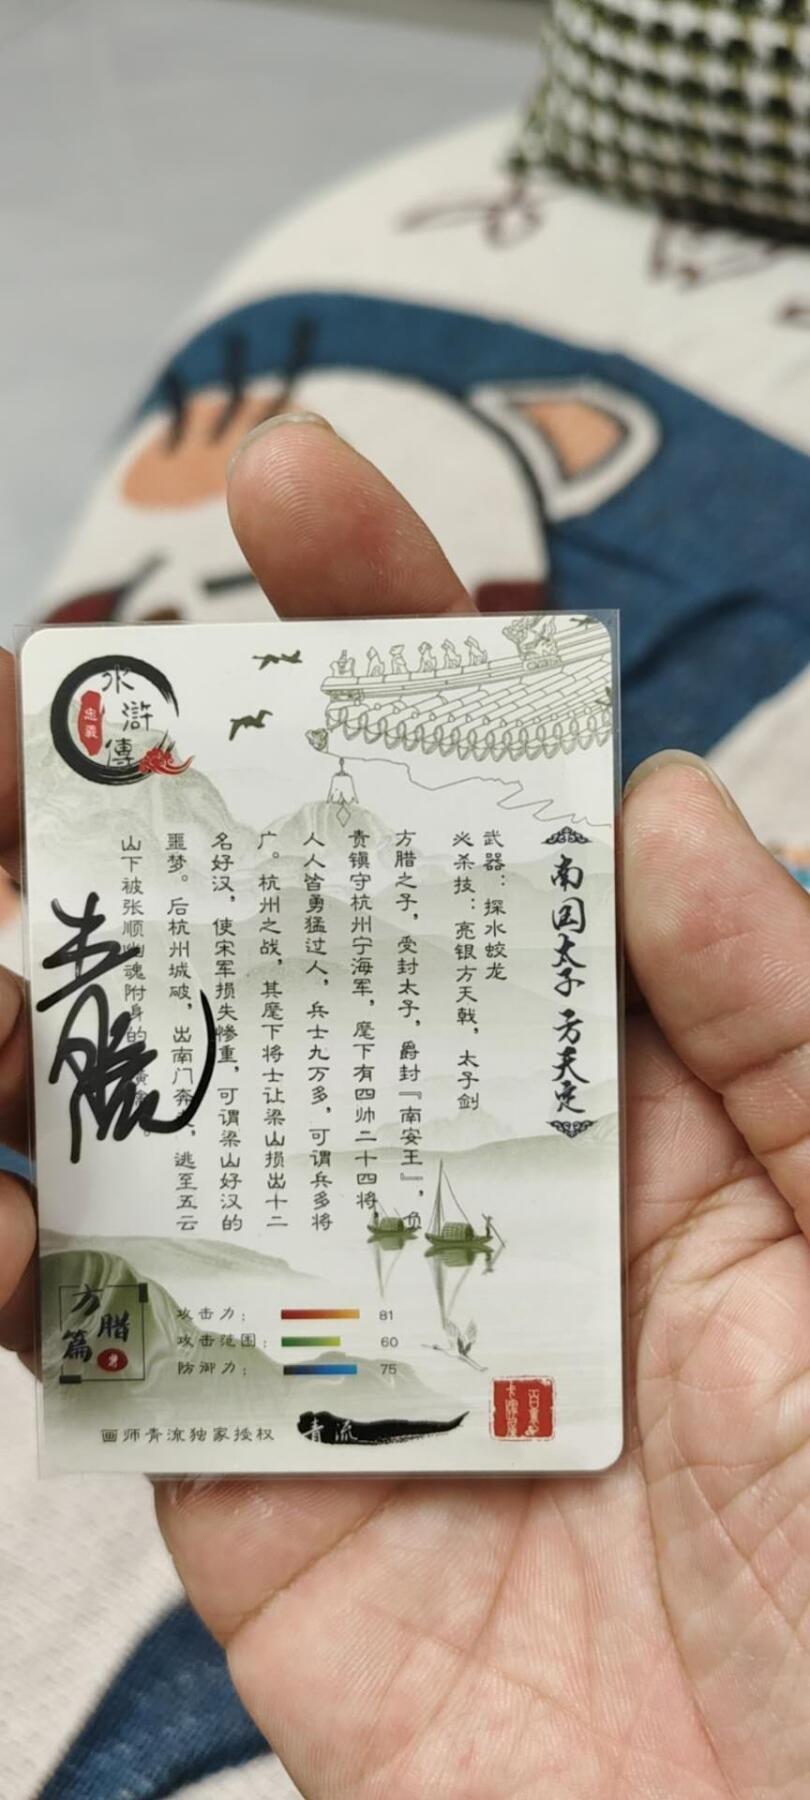 水滸傳
忠義
南国太子 方天定
武器：探水蛟龙
必杀技：亮银方天戟，太子剑
方腊之子，受封太子，爵封『南安王』，负
责镇守杭州宁海军，麾下有四帅二十四将，
人人皆勇猛过人，兵士九万多，可谓兵多将
广。杭州之战，其麾下将士让梁山损出十二
名好汉，使宋军损失惨重，可谓梁山好汉的
噩梦。后杭州城破，出南门奔，逃至五云
山下被张顺幽魂附身的
方腊篇
攻击力： 81
攻击范围： 60
防御力： 75
画师青流独家授权
青流